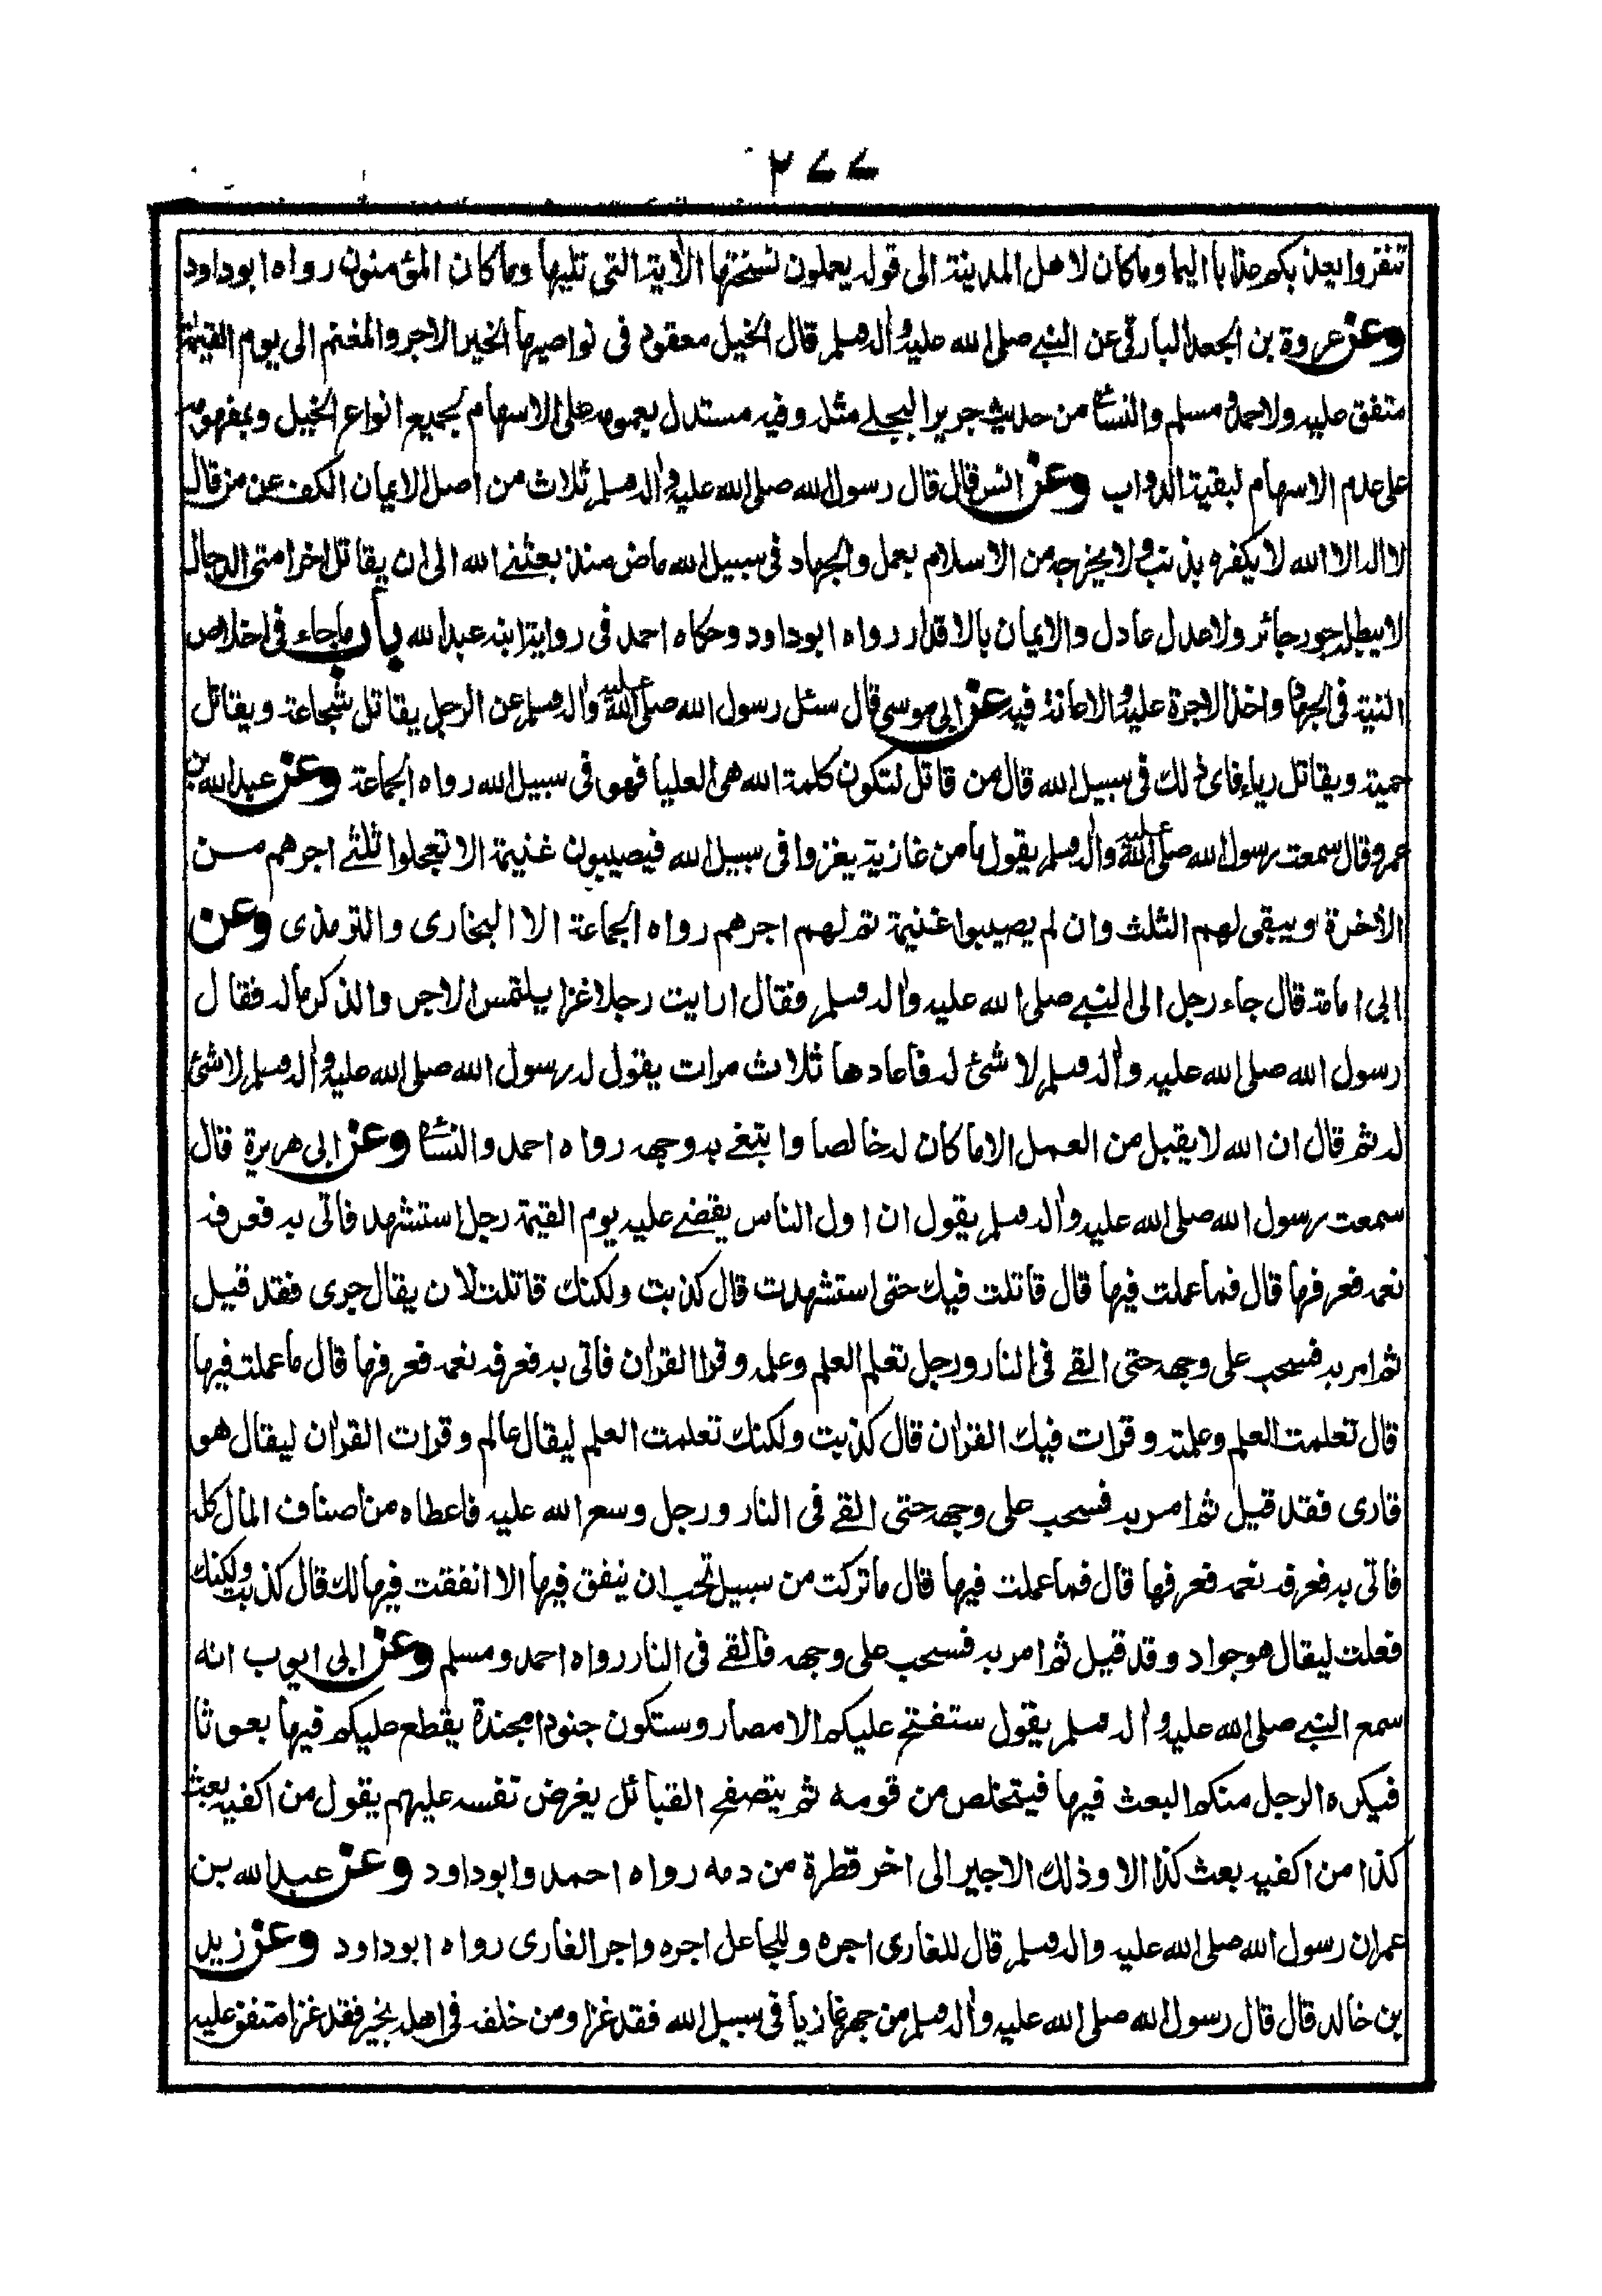 ٢٧٧
تنفروا يعذبكم عذابا اليما وماكان لاهل المدينة الى قوله يعملون نسختها الأية التى تليها وماكان المؤمنون رواه ابوداود
وعن عروة بن الجعد البارقى عن النبے صلى الله عليه واله وسلم قال الخيل معقود فى نواصيها الخير الاجر والمغنم الى يوم القيمة
متفق عليه ولاحمد ومسلم والنسائے من حديث جرير البجلے مثله وفيه مستدل بعمومه على الاسهام لجميع انواع الخيل وبمفهومه
على عدم الاسهام لبقية الدواب وعن انس قال قال رسول الله صلى الله عليه واله وسلم ثلاث من اصل الايمان الكف عن من قال
لا اله الا الله لا يكفره بذنب ولا يخرجه من الاسلام بعمل والجهاد فى سبيل الله ماض منذ بعثنے الله الى ان يقاتل اخر امتى الدجال
لا يبطله جور جائر ولا عدل عادل والايمان بالاقدار رواه ابوداود وحكاه احمد فى رواية ابنه عبد الله باب ماجاء فى اخلاص
النية فى الجهاد واخذ الاجرة عليه والاعانة فيه عن ابى موسى قال سئل رسول الله صلى الله عليه واله وسلم عن الرجل يقاتل شجاعة ويقاتل
حمية ويقاتل رياء فاى ذلك فى سبيل الله قال من قاتل لتكون كلمة الله هى العليا فهو فى سبيل الله رواه الجماعة وعن عبد الله بن
عمرو قال سمعت رسول الله صلى الله عليه واله وسلم يقول ما من غازية يغزوا فى سبيل الله فيصيبون غنيمة الا تعجلوا ثلثے اجرهم مــن
الأخرة ويبقى لهم الثلث وان لم يصيبوا غنيمة تم لهم اجرهم رواه الجماعة الا البخارى والترمذى وعن
ابى امامة قال جاء رجل الى النبے صلى الله عليه واله وسلم فقال ارايت رجلا غزا يلتمس الاجر والذكر ماله فقال
رسول الله صلى الله عليه واله وسلم لا شئ له فاعادها ثلاث مرات يقول له رسول الله صلى الله عليه واله وسلم لا شئ
له ثم قال ان الله لا يقبل من العمل الا ماكان له خالصا وابتغے به وجهه رواه احمد والنسائے وعن ابى هريرة قال
سمعت رسول الله صلى الله عليه واله وسلم يقول ان اول الناس يقضے عليه يوم القيمة رجل استشهد فاتى به فعرفه
نعمه فعرفها قال فما عملت فيها قال قاتلت فيك حتى استشهدت قال كذبت ولكنك قاتلت لان يقال جرى فقد قيل
ثم امر به فسحب على وجهه حتى القے فى النار ورجل تعلم العلم وعلمه وقرا القرأن فاتى به فعرفه نعمه فعرفها قال ما عملت فيها
قال تعلمت العلم وعلمته وقرات فيك القرأن قال كذبت ولكنك تعلمت العلم ليقال عالم وقرات القرأن ليقال هو
قارى فقد قيل ثم امر به فسحب على وجهه حتى القے فى النار ورجل وسع الله عليه فاعطاه من اصناف المال كله
فاتى به فعرفه نعمه فعرفها قال فما عملت فيها قال ما تركت من سبيل تحب ان ينفق فيها الا انفقت فيها لك قال كذبت ولكنك
فعلت ليقال هو جواد وقد قيل ثم امر به فسحب على وجهه فالقے فى النار رواه احمد ومسلم وعن ابى ايوب انه
سمع النبے صلى الله عليه واله وسلم يقول ستفتح عليكم الامصار وستكون جنودا مجندة يقطع عليكم فيها بعوثا
فيكره الرجل منكم البعث فيها فيتخلص من قومه ثم يتصفح القبائل يغرض نفسه عليهم يقول من اكفيه بعث
كذا من اكفيه بعث كذا الا وذلك الاجير الى اخر قطرة من دمه رواه احمد وابوداود وعن عبد الله بن
عمران رسول الله صلى الله عليه واله وسلم قال للغازى اجره وللجاعل اجره واجر الغازى رواه ابوداود وعن زيد
بن خالد قال قال رسول الله صلى الله عليه واله وسلم من جهز غازيا فى سبيل الله فقد غزا ومن خلفه فى اهله بخير فقد غزا متفق عليه